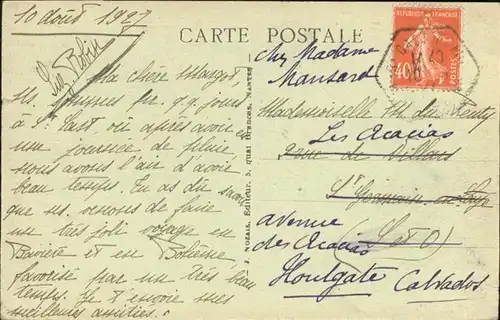 10 août 1927
CARTE POSTALE
REPUBLIQUE FRANÇAISE
40
POSTES
Ma chère Margot,
ns. sommes pr. q.q. jours
à St. Cast où après avoir eu
une journée de pluie
nous avons l'air d'avoir
beau temps. Tu as dû savoir
que ns. venons de faire
un très joli voyage en
Bavière et en Bohême,
favorisé par un très beau
temps. Je t'envoie mes
meilleures amitiés.
J. NOZAIS, Éditeur, 5, quai Brancas, NANTES
chez Madame
Mansard
Mademoiselle M. du
Les Acacias
rue de Villars
St Germain en Laye
(S et O)
avenue
des Acacias
Houlgate
Calvados